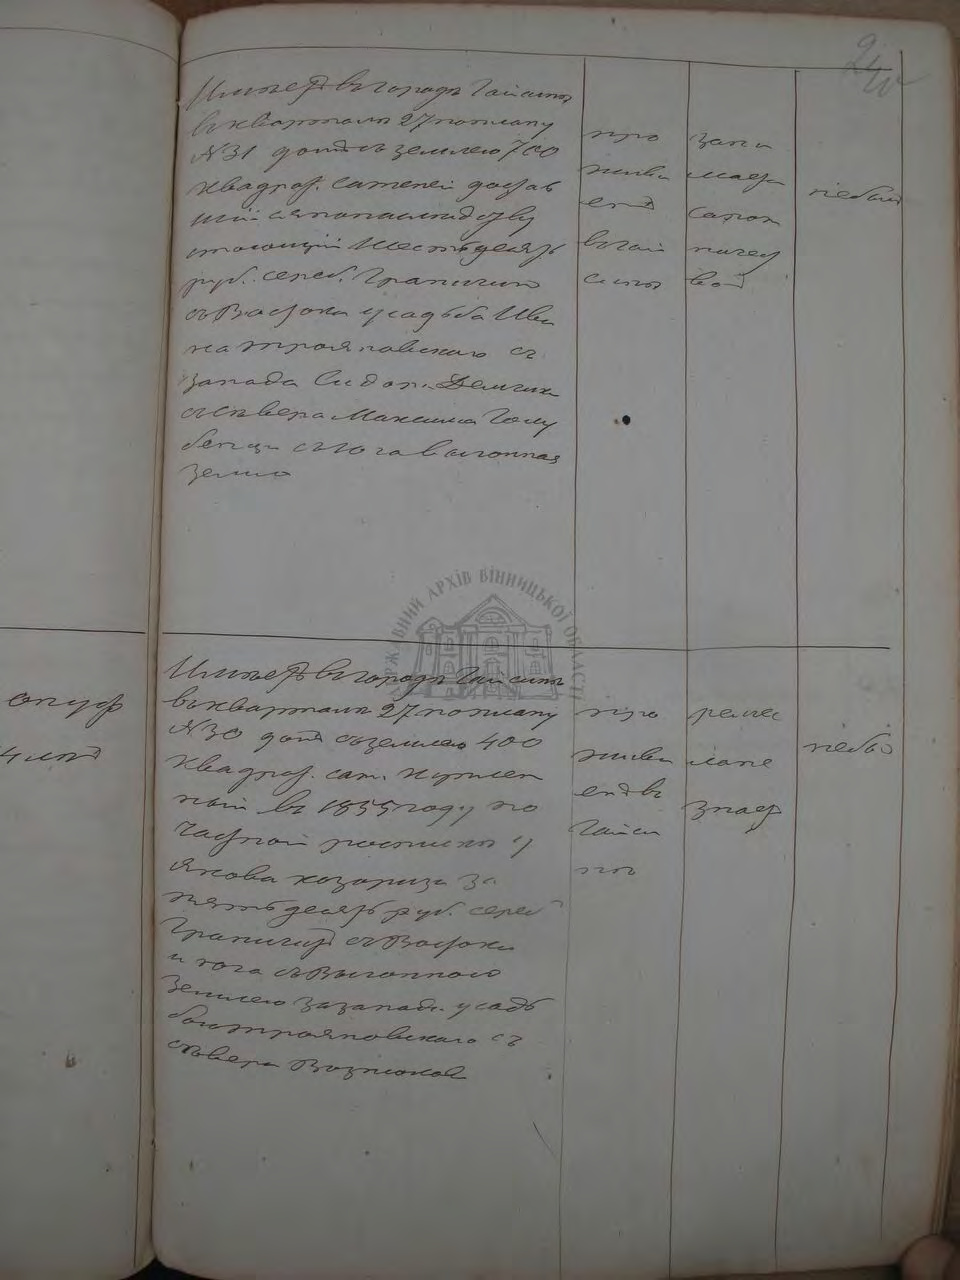 Имеетъ въ городе Гайсине
въ квартале 27 по плану
№31 домъ съ землею 700
квадрат. саженей достав
шійся по наследству
стоющій шестьдесятъ
руб. сереб. Граничитъ
съ Востока усадьба Ива
на Трояновскаго съ
запада Сидора Демчика
съ севера Максима Голу
бенци съ юга выгонная
земля
про
жива
етъ
въ Гай
сине
зани
мает
сапож
небылъ
ДЕРЖАВНИЙ АРХІВ ВІННИЦЬКОЇ ОБЛАСТІ
Имеетъ въ городе Гайсине
въ квартале 27 по плану
№30 домъ съ землею 400
квадрат. саж. куплен
ный въ 1855 году по
частной росписке у
Якова за
пятьдесятъ руб. сереб
Граничитъ съ Востока
и юга съ Выгонною
землею за запада усадь
бы Трояновскаго съ
севера
про
жива
етъ въ
Гайси
не
ремес
ла не
знает
небы